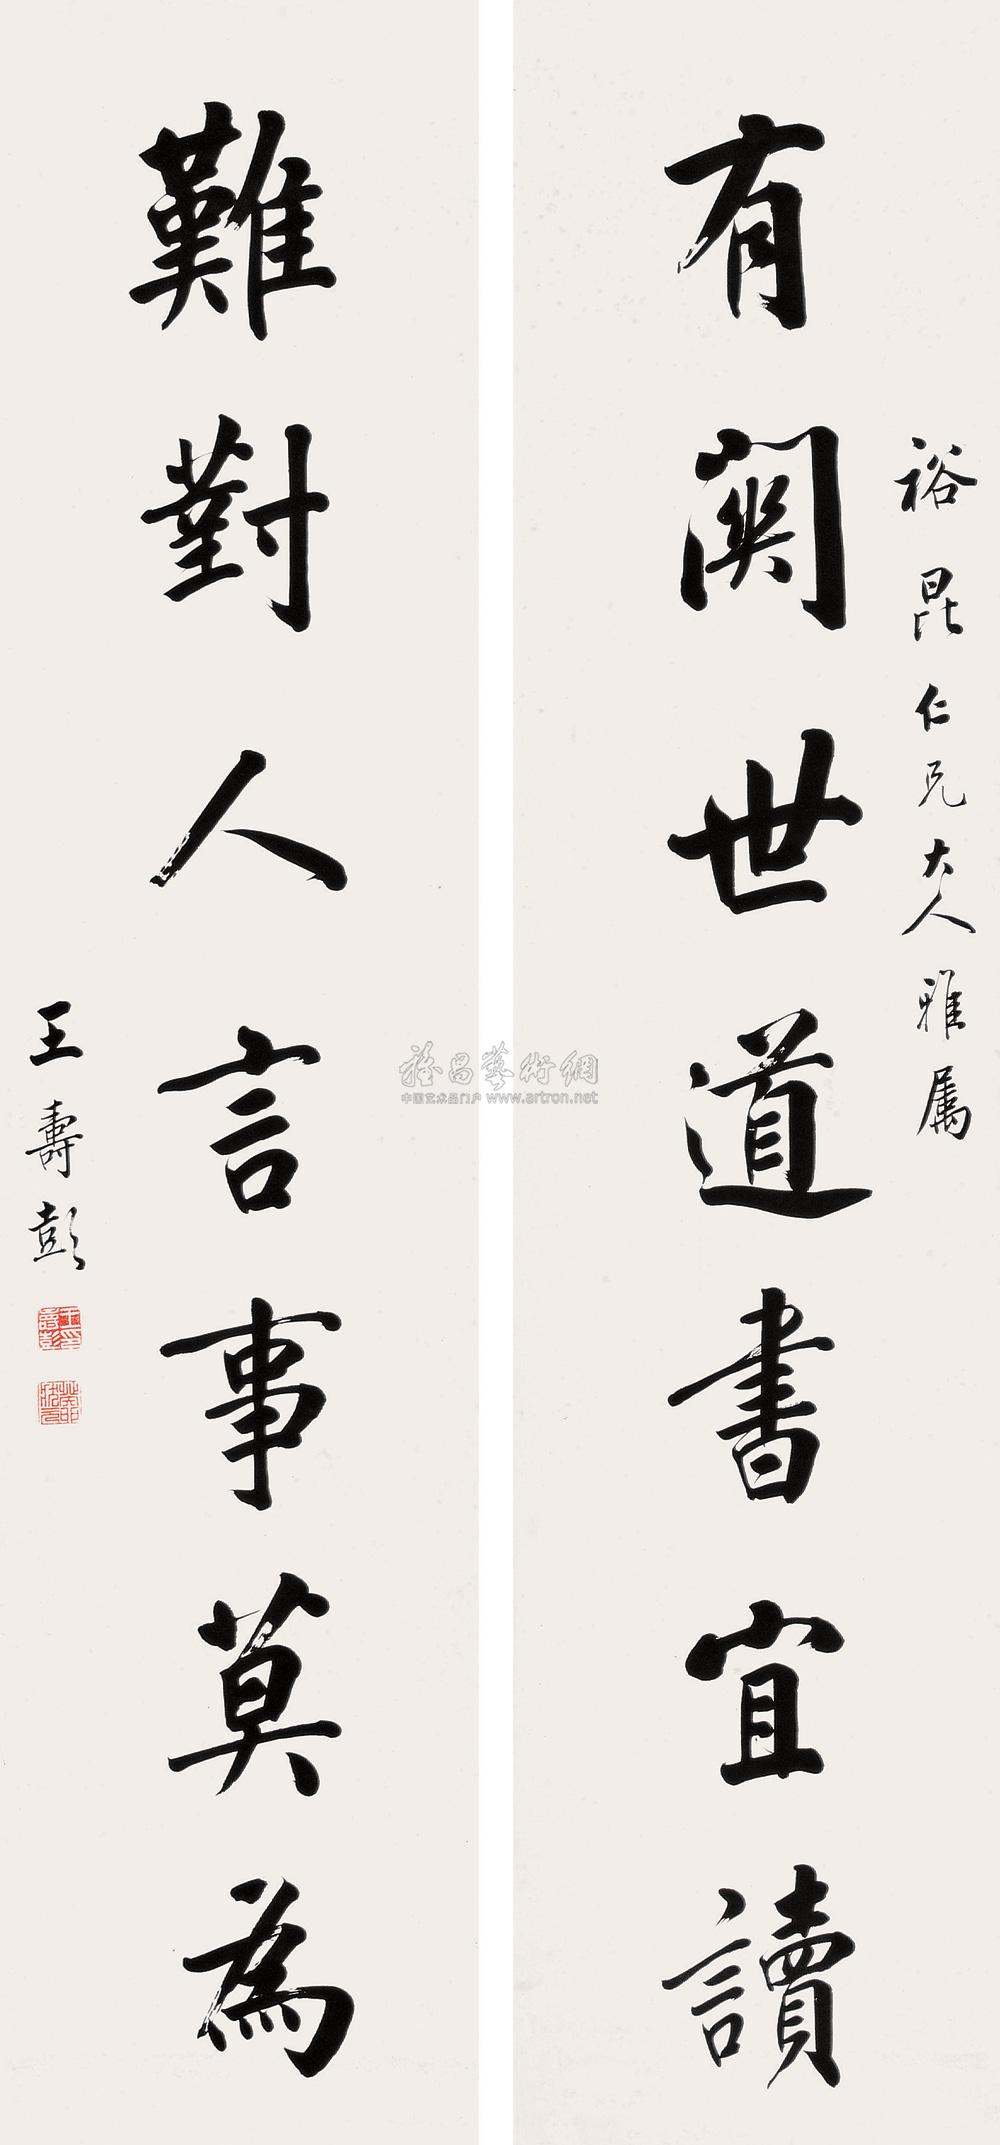 裕昆仁兄大人雅属
有関世道書宜讀
難對人言事莫為
王壽彭
雅昌藝術網
中国艺术品门户 www.artron.net